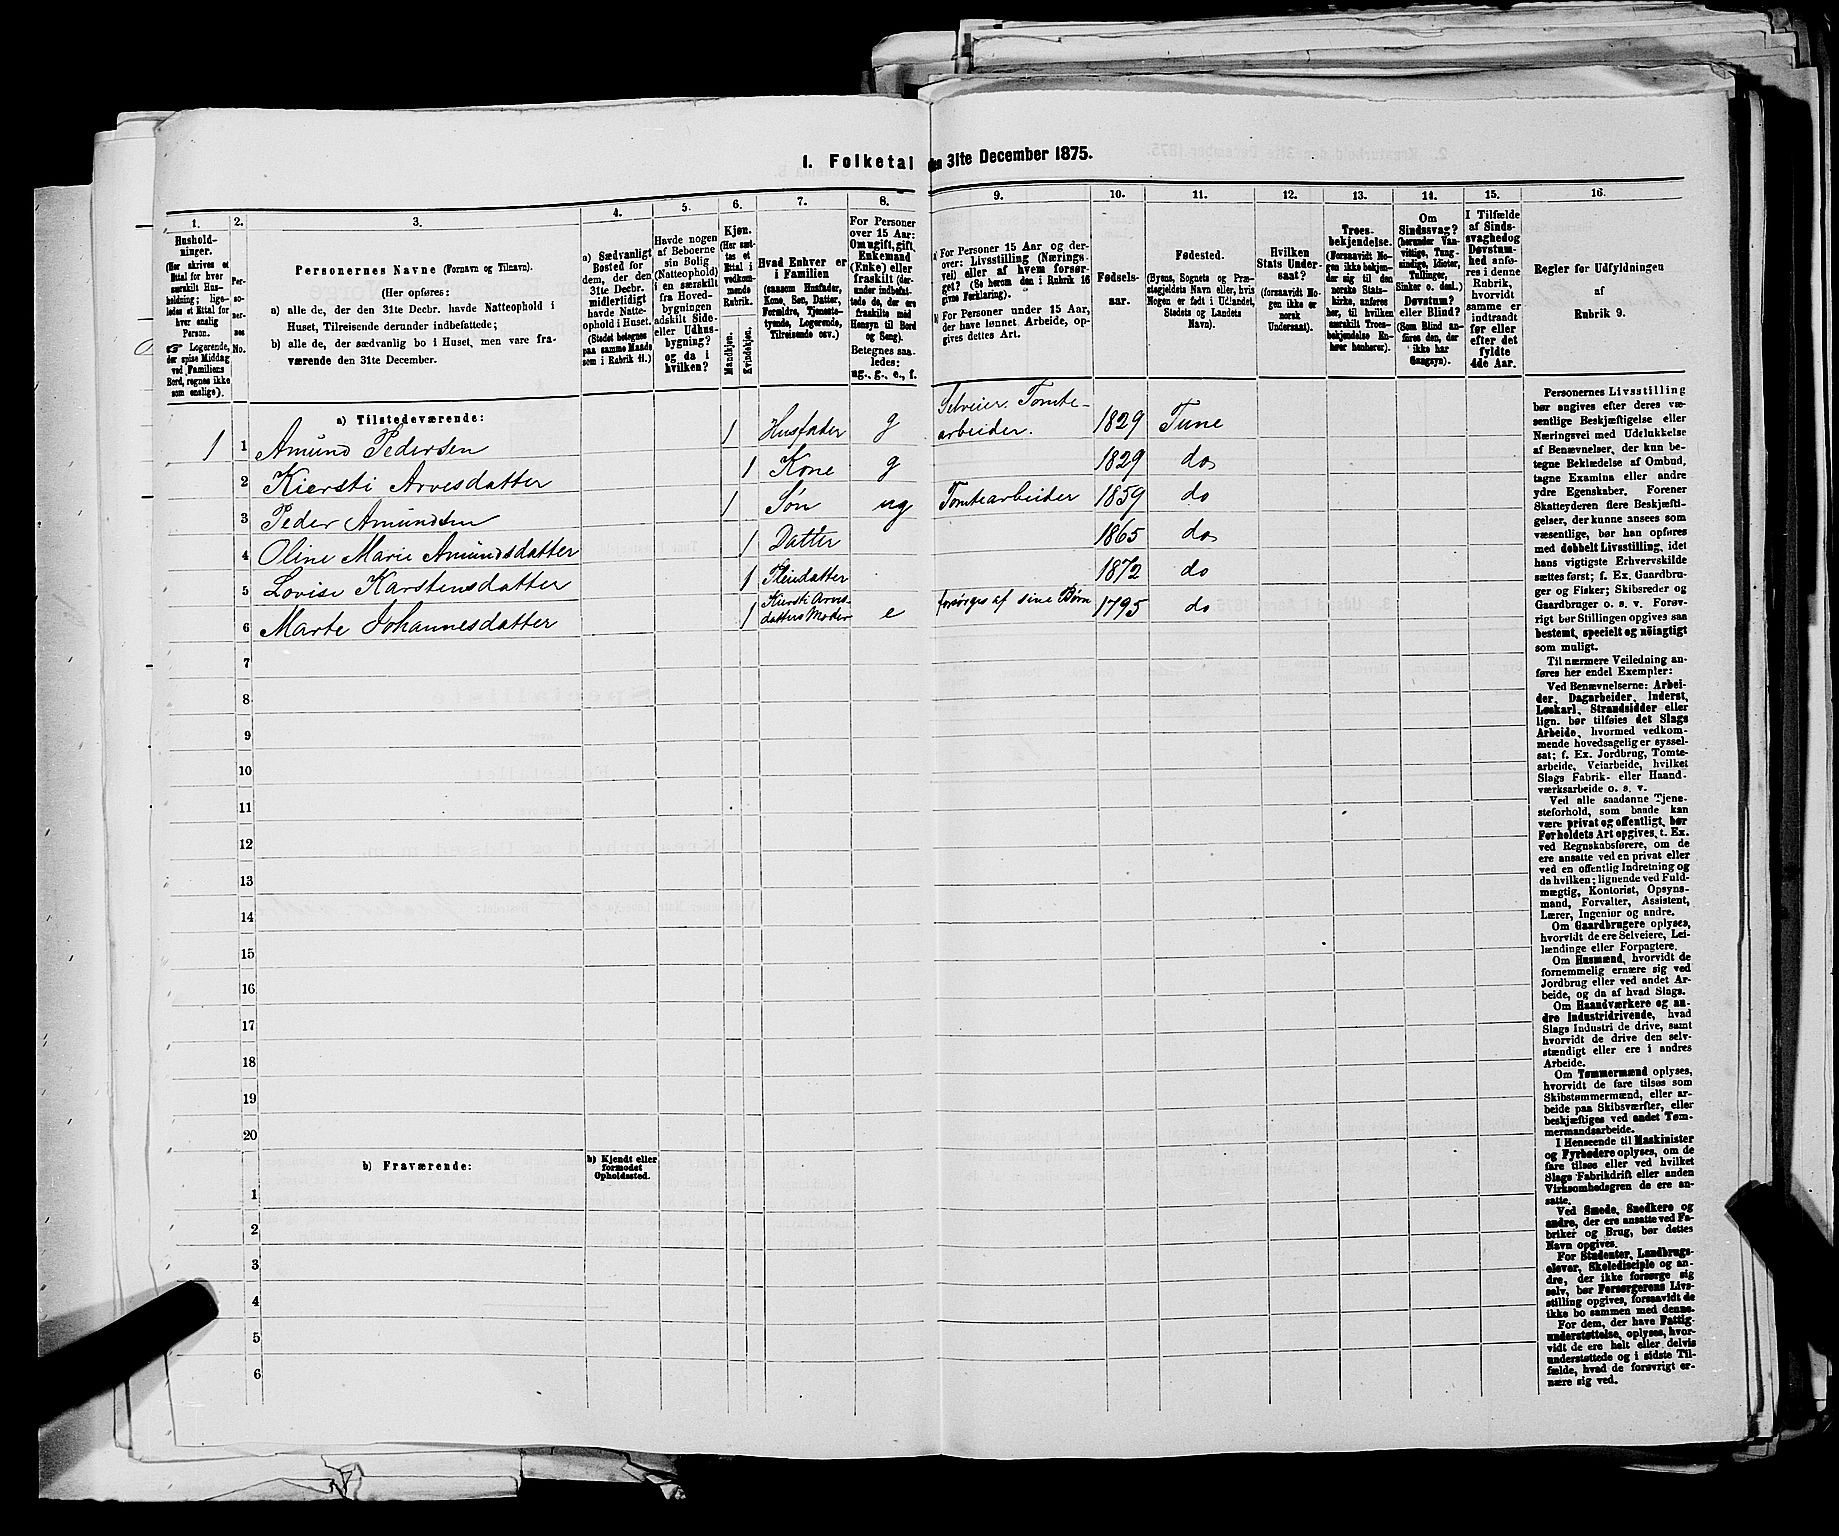 1. Folketal den 31te December 1875.
1.
2.
3.
4.
5.
6.
7.
8.
9.
10.
11.
12.
13.
14.
15.
16.
Hushold-
ninger.
(Her skrives et
Ettal for hver
særskilt Hus-
holdning; lige-
ledes et Ettal for
hver enslig
Person.
☞ Logerende,
der spise Middag
ved Familiens
Bord, regnes ikke
som enslige).
Per-
so-
ner-
nes
No.
Personernes Navne (Fornavn og Tilnavn).
(Her opføres:
a) alle de, der den 31te Decbr. havde Natteophold i
Huset, Tilreisende derunder indbefattede;
b) alle de, der sædvanlig bo i Huset, men vare fra-
værende den 31te December.
a) Sædvanligt
Bosted for
dem, der den
31te Decbr.
midlertidigt
havde Natte-
ophold i Huset.
(Stedet betegnes
paa samme Maade
som i Rubrik 11.)
Havde nogen
af Beboerne
sin Bolig
(Natteophold)
i en særskilt
fra Hoved-
bygningen
adskilt Side-
eller Udhus-
bygning?
og da i
hvilken?
Kjøn.
(Her sæt-
tes et
Ettal i
vedkom-
mende
Rubrik.
Mandkjøn.
Kvindekjøn.
Hvad Enhver er
i Familien
(saasom Husfader,
Kone, Søn, Datter,
Forældre, Tjeneste-
tyende, Logerende,
Tilreisende osv.)
For Personer
over 15 Aar:
Om ugift, gift,
Enkemand
(Enke) eller
fraskilt (der-
under indbefat-
tede de, der ere
fraskilte med
Hensyn til Bord
og Seng).
Betegnes saa-
ledes:
ug., g., e., f.
a) For Personer 15 Aar og der-
over: Livsstilling (Nærings-
vei) eller af hvem forsør-
get? (Se herom den i Rubrik 16
givne Forklaring).
b) For Personer under 15 Aar,
der have lønnet Arbeide, op-
gives dettes Art.
Fødsels-
aar.
Fødested.
(Byens, Sognets og Præ-
stegjeldets Navn eller, hvis
Nogen er født i Udlandet,
Stedets og Landets
Navn).
Hvilken
Stats Under-
saat?
(forsaavidt No-
gen ikke er
norsk
Undersaat).
Troes-
bekjendelse.
(Forsaavidt No-
gen ikke bekjen-
der sig til den
norske Stats-
kirke, anføres
her, til hvilken
særskilt Troes-
bekjendelse En-
hver henhører).
Om
Sindssvag?
(herunder Van-
vittige, Tung-
sindige, Idioter,
Tullinger,
Sinker o. desl.)
Døvstum?
eller Blind?
(Som Blind an-
føres den, der
ikke har
Gangsyn).
I Tilfælde
af Sinds-
svaghed og
Døvstum-
hed anfø-
res i denne
Rubrik,
hvorvidt
samme er
indtraadt
før eller
efter det
fyldte
4de Aar.
Regler for Udfyldningen
af
Rubrik 9.
a) Tilstedeværende:
1 1 Amund Pedersen 1 Husfader g Selveier. Tomte-
arbeider. 1829 Tune
2 Kiersti Arvesdatter 1 Kone g 1829 do
3 Peder Amundsen 1 Søn ug Tomtearbeider 1859 do
4 Oline Marie Amundsdatter 1 Datter 1865 do
5 Lovise Karstensdatter 1 Pleiedatter 1872 do
6 Marte Johannesdatter 1 Kiersti Arves-
datters Moder e forsørges af sine Børn 1795 do
7
8
9
10
11
12
13
14
15
16
17
18
19
20
b) Fraværende:
b) Kjendt eller
formodet
Opholdssted.
1
2
3
4
5
6
Personernes Livsstilling
bør angives efter deres væ-
sentlige Beskjæftigelse eller
Næringsvei med Udelukkelse
af Benævnelser, der kun be-
tegne Beklædelse af Ombud,
tagne Examina eller andre
ydre Egenskaber. Forener
Skatteyderen flere Beskjæfti-
gelser, der kunne ansees som
væsentlige, bør han opføres
med dobbelt Livsstilling, idet
hans vigtigste Erhvervskilde
sættes først; f. Ex. Gaardbru-
ger og Fisker; Skibsreder og
Gaardbruger o. s. v. Forøv-
rigt bør Stillingen opgives saa
bestemt, specielt og nøiagtigt
som muligt.
Til nærmere Veiledning an-
føres her endel Exempler:
Ved Benævnelserne: Arbei-
der, Dagarbeider, Inderst,
Løskarl, Strandsidder eller
lign. bør tilføies det Slags
Arbeide, hvormed vedkom-
mende hovedsagelig er syssel-
sat; f. Ex. Jordbrug, Tomte-
arbeide, Veiarbeide, hvilket
Slags Fabrik- eller Haand-
værksarbeide o. s. v.
Ved alle saadanne Tjene-
steforhold, som baade kan
være privat og offentligt, bør
Forholdets Art opgives, t. Ex.
ved Regnskabsførere, om de
ere ansatte ved en privat eller
ved en offentlig Indretning og
da hvilken; lignende ved Fuld-
mægtig, Kontorist, Opsyns-
mand, Forvalter, Assistent,
Lærer, Ingeniør og andre.
Om Gaardbrugere oplyses,
hvorvidt de ere Selveiere, Lei-
lændinge eller Forpagtere.
Om Husmænd, hvorvidt de
fornemmelig ernære sig ved
Jordbrug eller ved andet Ar-
beide, og da af hvad Slags.
Om Haandværkere og an-
dre Industridrivende, hvad
Slags Industri de drive, samt
hvorvidt de drive den selv-
stændigt eller ere i andres
Arbeide.
Om Tømmermænd oplyses,
hvorvidt de fare tilsøs som
Skibstømmermænd, eller ar-
beide paa Skibsværfter, eller
beskjæftiges ved andet Tøm-
mermandsarbeide.
I Henseende til Maskinister
og Fyrbødere oplyses, om de
fare tilsøs eller ved hvilket
Slags Fabrikdrift eller anden
Virksomhedsgren de ere an-
satte.
Ved Smede, Snedkere og
andre, der ere ansatte ved Fa-
briker og Brug, bør dettes
Navn opgives.
For Studenter, Landbrugs-
elever, Skoledisciple og an-
dre, der ikke forsørge sig
selv, bør Forsørgerens Livs-
stilling opgives, forsaavidt de
ikke bo sammen med denne.
For dem, der have Fattig-
understøttelse, oplyses, hvor-
vidt de ere helt eller delvis
understøttede og i sidste Til-
fælde, hvad de forøvrigt er-
nære sig ved.